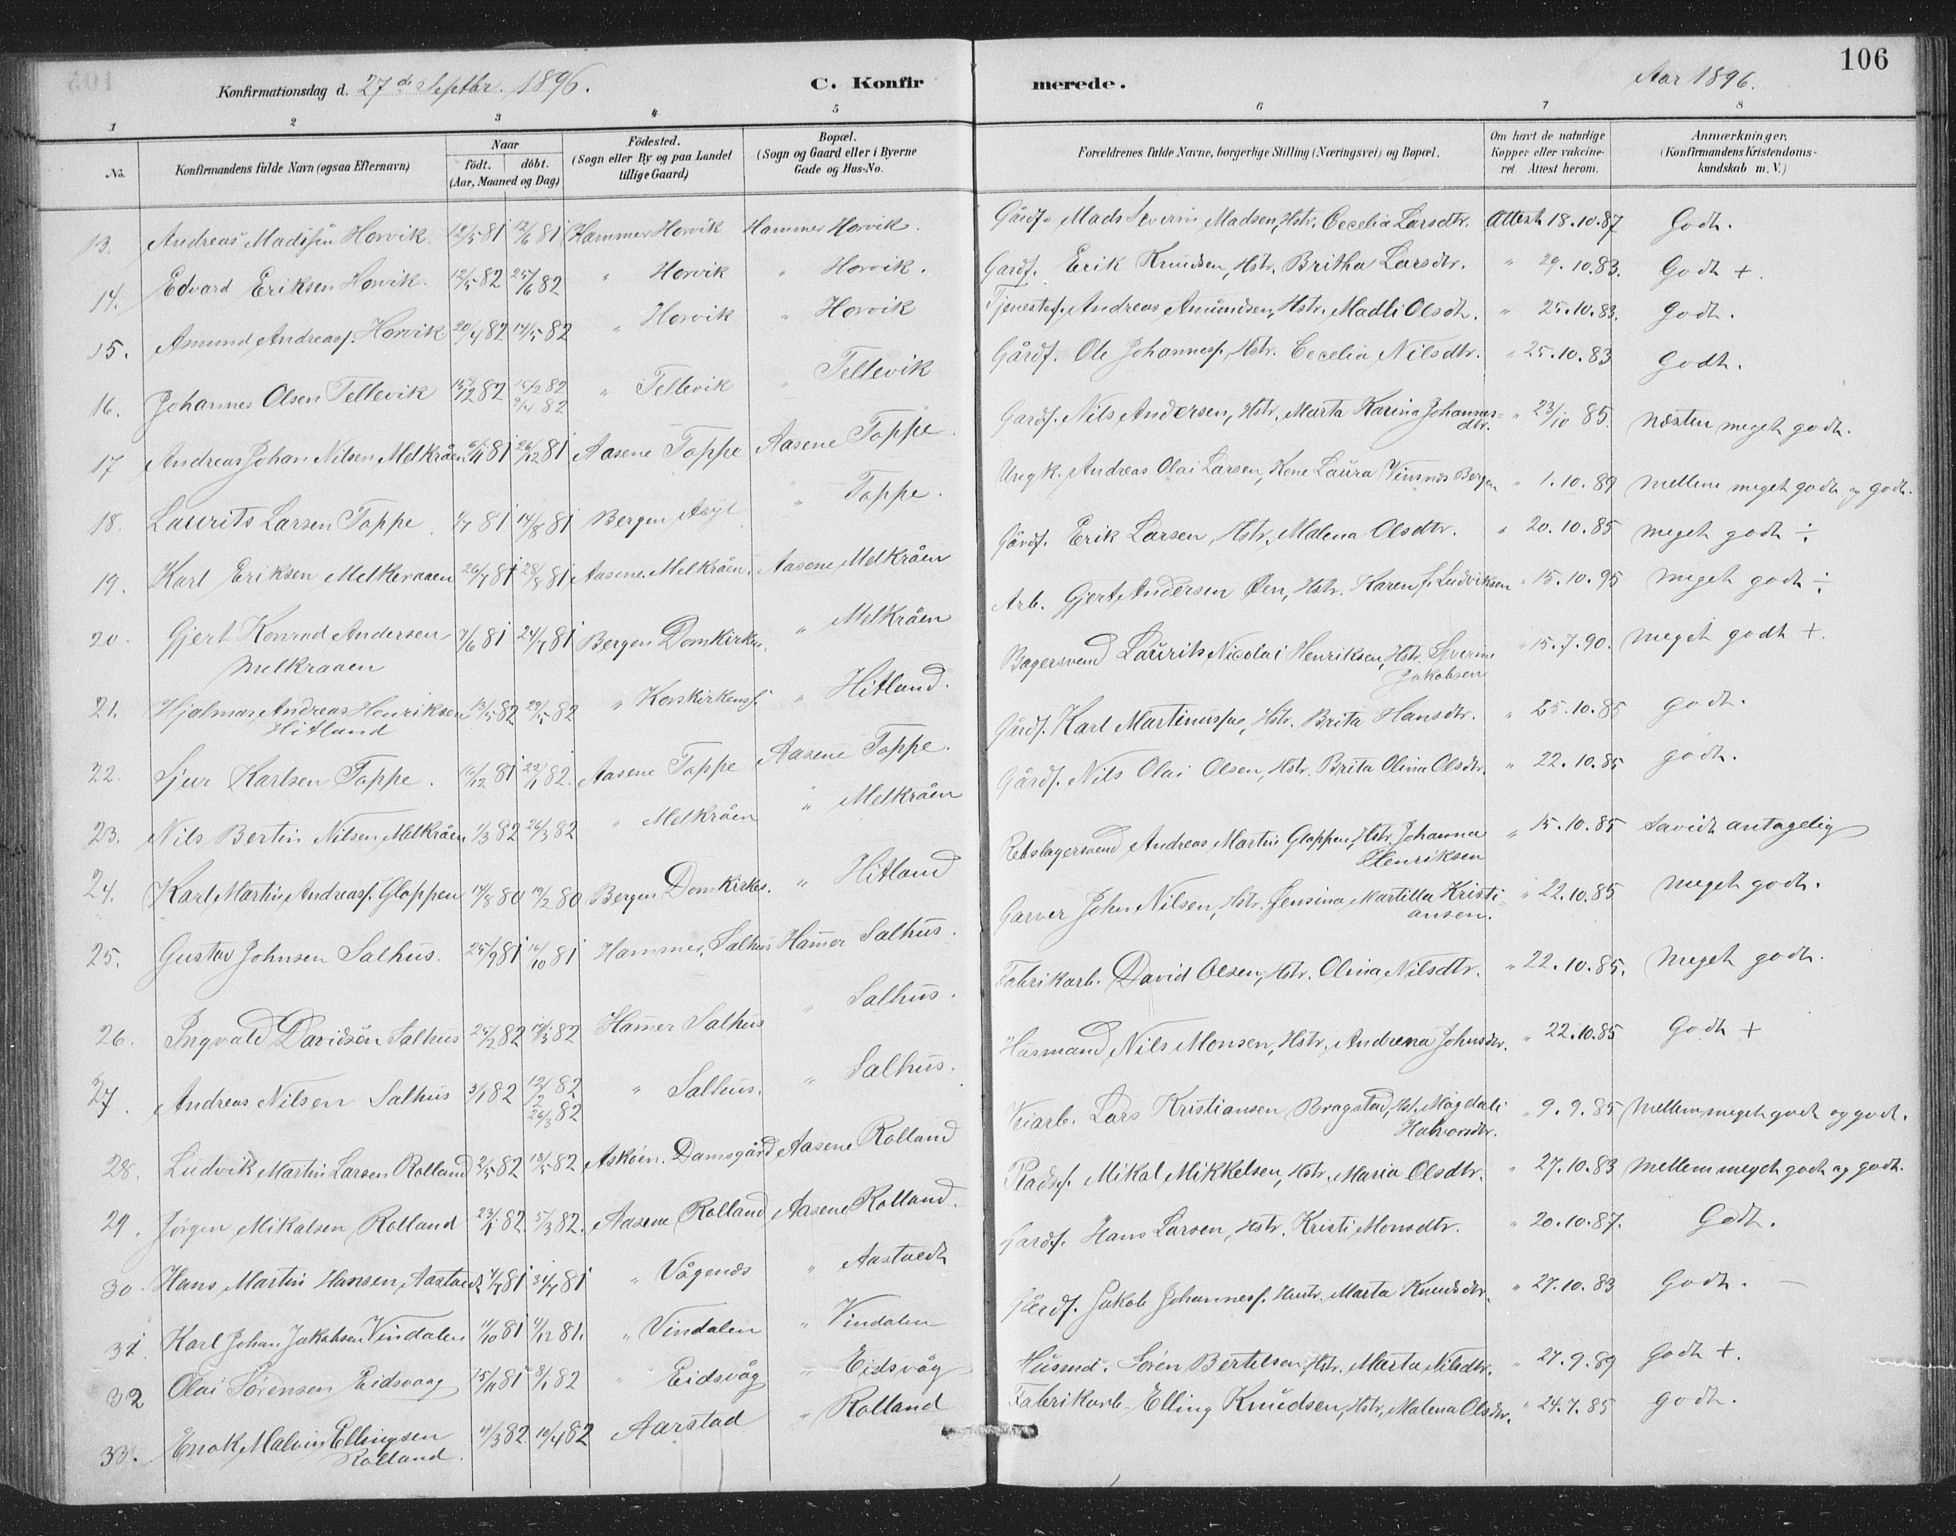 106
Konfirmationsdag d. 27de Septbr. 1896. C. Konfirmerede. Aar 1896.
1 2 3 4 5 6 7 8
No. Konfirmandens fulde Navn (ogsaa Efternavn) Naar födt. döbt. (Aar, Maaned og Dag) Födested. (Sogn eller By og paa Landet tillige Gaard) Bopæl. (Sogn og Gaard eller i Byerne Gade og Hus-No. Forældrenes fulde Navne, borgerlige Stilling (Næringsvei) og Bopæl. Om havt de naturlige Kopper eller vakcineret Attest herom. Anmærkninger, (Konfirmandens Kristendomskundskab m. V.)
13. Andreas Madssen Horvik. 12/5 81 12/6 81 Hammer Horvik Hammer Horvik. Gårdf. Mads Severin Madsen, Hstr. Cecelia Larsdtr. Attest 18.10.87 Godt.
14. Edvard Eriksen Horvik. 12/5 82 25/6 82 " Horvik " Horvik. Gardf. Erik Knudsen, Hstr. Britha Larsdtr. " 29.10.83. Godt +.
15. Amund Andreasf. Horvik 20/4 82 14/5 82 " Horvik " Horvik Tjenestef. Andreas Amundsen, Hstr. Madli Olsdt. " 25.10.83. Godt.
16. Johannes Olsen Tellevik 15/2 82 15/2 82 9/4 82 " Tellevik " Tellevik Gårdf. Ole Johannesf. Hstr. Cecelia Nilsdtr. " 25.10.83 Godt.
17 Andreas Johan Nilsen Melkråen 6/11 81 26/12 81 Aasene Toppe Aasene Toppe. Gardf. Nils Andersen, Hstr. Marta Karina Johannesdtr. " 23/10 85. Næsten meget godt.
18. Laurits Larsen Toppe 1/7 81 14/8 81 Bergen Asyl " Toppe. Ungk. Andreas Olai Larsen, Kone Laura Vimnes Bergen " 1.10.89 Mellem meget godt og godt.
19. Karl Eriksen Melkeraaen 26/7 81 28/8 81 Aasene Melkråen. Aasene Melkråen Gårdf. Erik Larsen, Hstr. Malena Olsdtr. " 20.10.85 meget godt ÷
20. Gjert Konrad Andersen Melkraaen 7/6 81 24/7 81 Bergen Domkirken. " Melkråen Arb. Gjert Andersen Øen, Hstr. Karen f. Ludviksen " 15.10.95 meget godt ÷
21. Hjalmar Andreas Henriksen Hitland 13/5 82 29/5 82 " Korskirkensf. " Hitland. Bagersvend Laurits Nicolai Henriksen, Hstr. Severine Jakobsen " 15.7.90. meget godt +.
22. Sjur Karlsen Toppe. 16/12 81 22/1 82. Aasene Toppe Aasene Toppe. Gårdf. Karl Martinussen, Hstr. Brita Hansdtr. " 25.10.85 godt.
23. Nils Bertin Nilsen Melkråen 1/3 82 26/3 82 " Melkråen " Melkråen Gårdf. Nils Olai Olsen, Hstr. Brita Olina Olsdtr. " 22.10.85 godt.
24. Karl Martin Andreasf. Gloppen 14/8 80 19/2 80 Bergen Domkirke. " Hitland Rebslagersvend Andreas Martin Gloppen, Hstr. Johanna Henriksen " 15.10.85 Savidt antagelig
25. Gustav Johnsen Salhus. 25/9 81 16/10 81 Hammer, Salhus Hamer Salhus. Garver John Nilsen, Hstr. Jensina Martilla Kristiansen. " 22.10.85 meget godt.
26. Ingvald Davidsen Salhus 25/2 82 19/3 82 Hamer Salhus " Salhus. Fabrikarb. David Olsen, Hstr. Olina Nilsdtr. " 22.10.85. Meget godt.
27. Andreas Nilsen Salhus 3/1 82 12/2 82 26/3 82 " Salhus. " Salhus. Husmand Nils Monsen, Hstr. Andrena Johnsdtr. " 22.10.85 Godt +
28. Ludvik Martin Larsen Rolland 2/5 82 13/5 82 Askøen. Damsgård Aasene Rolland Veiarb. Lars Kristiansen Bragstad, Hst. Magdali Halvorsdtr. " 9.9.85 Mellem meget godt og godt.
29. Jørgen Mikalsen Rolland 23/1 82 5/3 82. Aasene Rolland Aasene Rolland. Pladsf. Mikal Mikkelsen, Hstr. Maria Olsdtr. " 27.10.83 mellem meget godt og godt.
30. Hans Martin Hansen, Aastvedt 4/7 81 31/7 81 " Vågenes " Aastvedt Gardf. Hans Larsen, Hstr. Kristi Monsdtr. " 20.10.87. Godt.
31. Karl Johan Jakobsen Vindalen 11/10 81 4/12 81. " Vindalen " Vindalen Gårdf. Jakob Johannesf. Hustr. Marta Knudsdtr. " 27.10.83 Godt. —
32 Olai Sørensen Eidsvaag 15/11 81 8/1 82 " Eidsvåg " Eidsvåg Husmd. Søren Bertelsen, Hstr. Marta Nilsdtr. " 27.9.89 Godt +.
33. Enok Malvin Ellingsen Rolland. 11/3 82 10/4 82 Aarstad " Rolland Fabrikarb. Elling Knudsen, Hstr. Malena Olsdtr. " 24.7.85 godt.